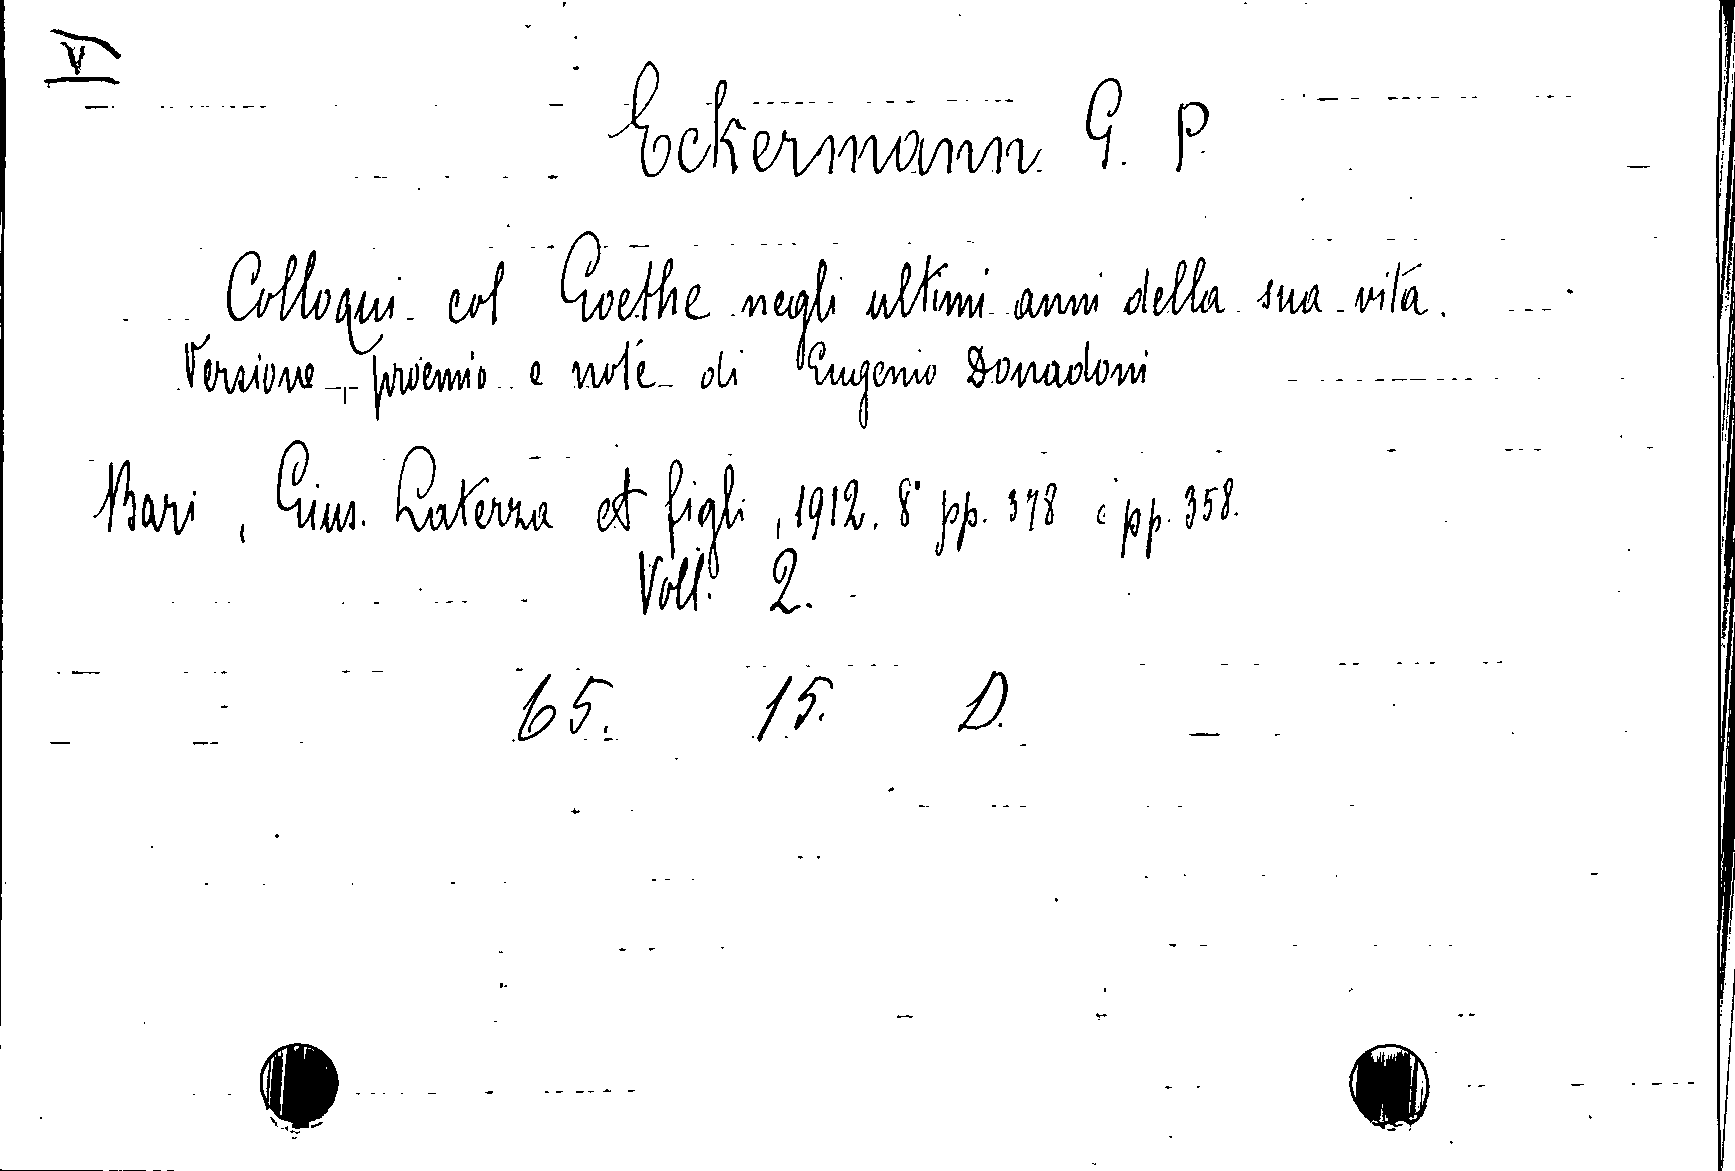 V
Eckermann G. P.
Colloqui col Goethe negli ultimi anni della sua vita.
Versione, proemio e note di Eugenio Donadoni
Bari, Gius. Laterza et figli, 1912. 8° pp. 378 e pp. 358.
Voll. 2.
65. 15. D.